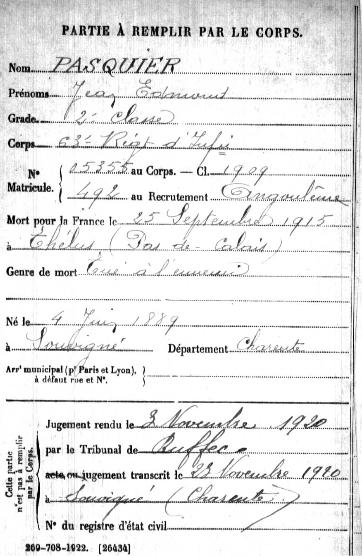 PARTIE À REMPLIR PAR LE CORPS.
Nom PASQUIER
Prénoms Jean Edmond
Grade 2e Classe
Corps 63e Régt d'Infie
N° 05355 au Corps. — Cl. 1909
Matricule. 492 au Recrutement Angoulême
Mort pour la France le 25 Septembre 1915
à Thélus (Pas-de-Calais)
Genre de mort Tué à l'ennemi
Né le 4 Juin 1889
à Souvigné Département Charente
Arrt municipal (pr Paris et Lyon),
à défaut rue et N°.
Cette partie n'est pas à remplir par le Corps.
Jugement rendu le 3 Novembre 1920
par le Tribunal de Ruffec
acte ou jugement transcrit le 23 Novembre 1920
à Souvigné (Charente)
N° du registre d'état civil
269-708-1922. [26434]